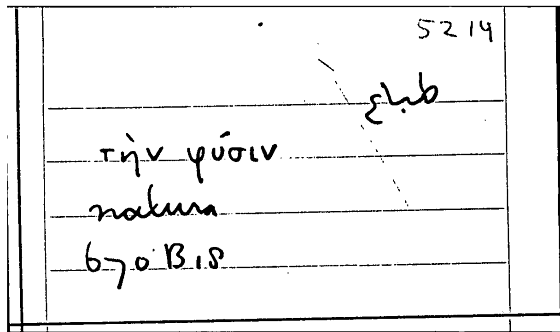 5214
طباع
τὴν φύσιν
natura
670 B 18